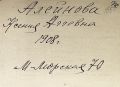 Алейнова
Ксения Агеевна
1908 г.
М-Морская 70